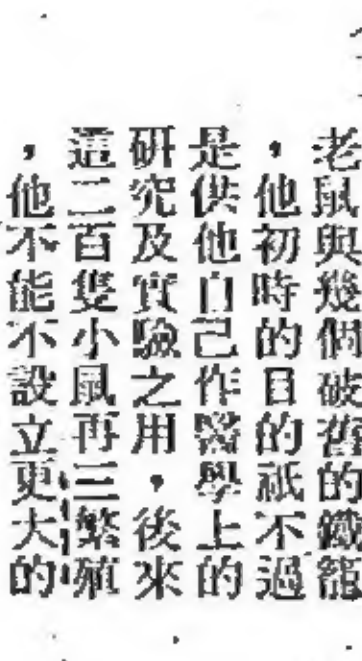 老鼠與幾個破舊的鐵籠
，他初時的目的祇不過
是供他自己作醫學上的
研究及實驗之用，後來
這二百隻小鼠再三繁殖
，他不能不設立更大的